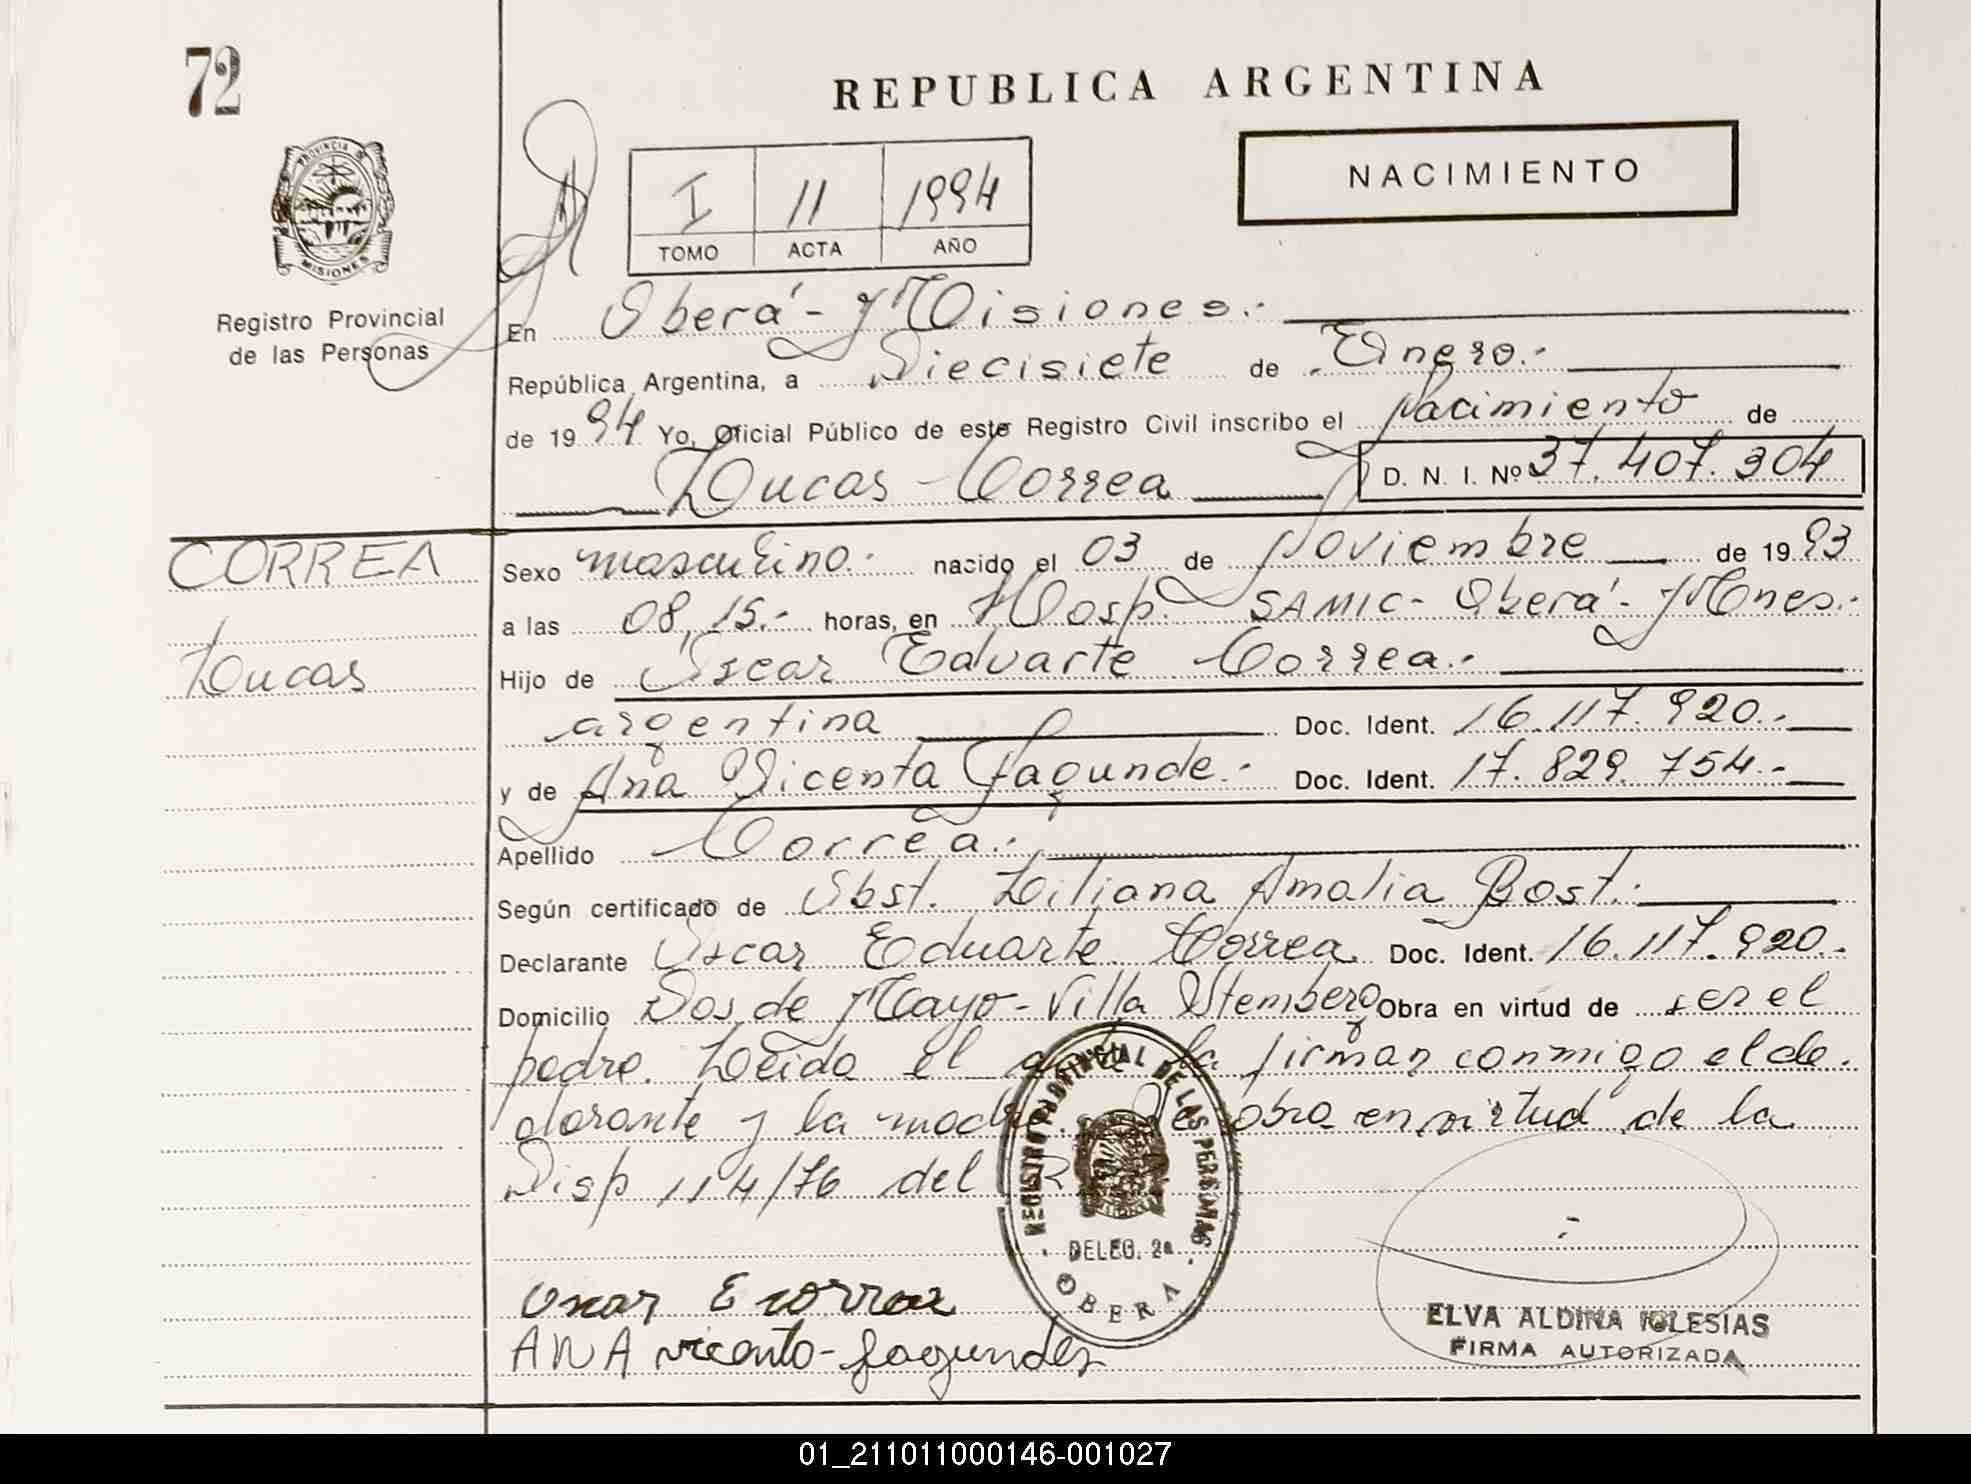 72
REPUBLICA ARGENTINA
PROVINCIA DE
MISIONES
Registro Provincial
de las Personas
I 11 1994
TOMO ACTA AÑO
NACIMIENTO
En Oberá - Misiones.-
República Argentina, a Diecisiete de Enero.-
de 1994 Yo, Oficial Público de este Registro Civil inscribo el Nacimiento de
Lucas Correa D. N. I. Nº 37.407.304
CORREA
Lucas
Sexo masculino.- nacido el 03 de Noviembre de 1993
a las 08,15.- horas, en Hosp. SAMIC- Oberá- Mnes.-
Hijo de Oscar Eduarte Correa.-
argentina Doc. Ident. 16.117.920.-
y de Ana Vicenta Fagunde.- Doc. Ident. 17.829.754.-
Apellido Correa.-
Según certificado de Obst. Liliana Amalia Bost.-
Declarante Oscar Eduarte Correa Doc. Ident. 16.117.920.-
Domicilio Dos de Mayo - Villa Stemberg Obra en virtud de ser el
padre. Leida el la firman conmigo el de.
clarante y la obra en virtud de la
Disp 114/76 del
REGISTRO PROVINCIAL DE LAS PERSONAS
DELEG. 2a
OBERA
Oscar E correa
ANA vicenta - fagundez
ELVA ALDINA IGLESIAS
FIRMA AUTORIZADA
01_211011000146-001027